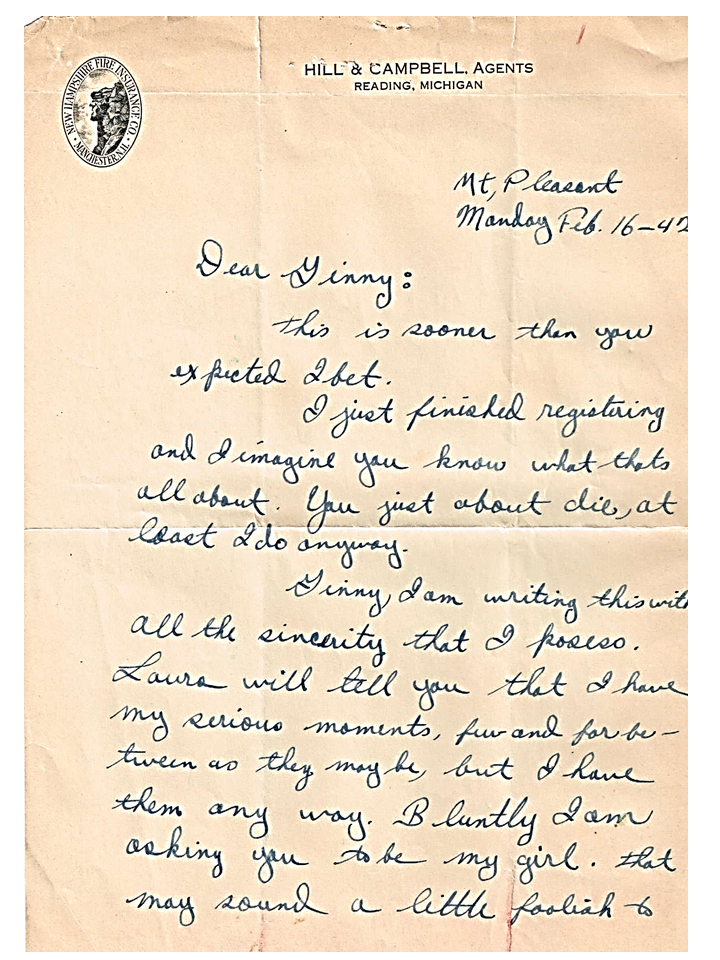 HILL & CAMPBELL, AGENTS
READING, MICHIGAN
NEW HAMPSHIRE FIRE INSURANCE CO.
MANCHESTER, N.H.
Mt, Pleasant
Monday Feb. 16-42
Dear Ginny:
This is sooner than you
expected I bet.
I just finished registering
and I imagine you know what thats
all about. You just about die, at
least I do anyway.
Ginny, I am writing this with
all the sincerity that I posess.
Laura will tell you that I have
my serious moments, few and far be-
tween as they may be, but I have
them any way. Bluntly I am
asking you to be my girl. That
may sound a little foolish to